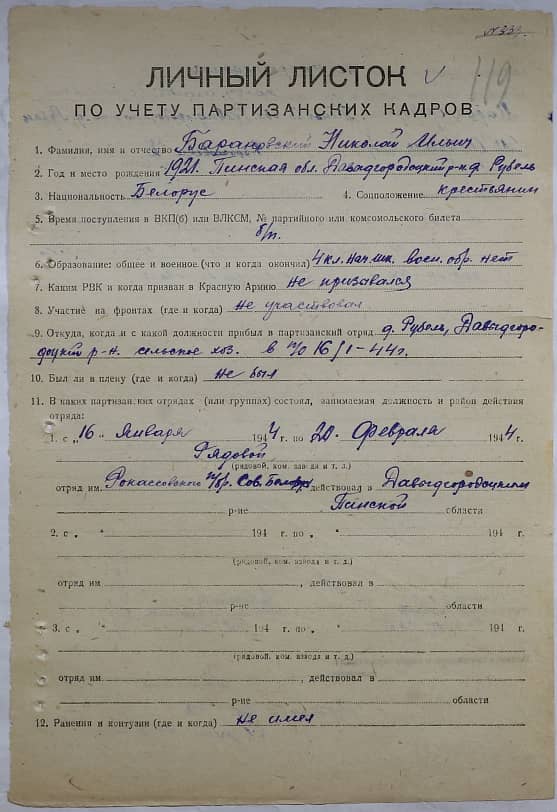 № 333.
ЛИЧНЫЙ ЛИСТОК
119
ПО УЧЕТУ ПАРТИЗАНСКИХ КАДРОВ
1. Фамилия, имя и отчество Барановский Николай Ильич
2. Год и место рождения 1921. Пинская обл. Давыдгородоцкий р-н д. Рубель
3. Национальность Белорус 4. Соцположение крестьянин
5. Время поступления в ВКП(б) или ВЛКСМ, № партийного или комсомольского билета
б/п.
6. Образование: общее и военное (что и когда окончил) 4 кл. нач. шк. воен. обр. нет
7. Каким РВК и когда призван в Красную Армию не призывался
8. Участие на фронтах (где и когда) не участвовал
9. Откуда, когда и с какой должности прибыл в партизанский отряд д. Рубель, Давыдгоро-
доцкий р-н. сельское хоз. в п/о 16/I-44г.
10. Был ли в плену (где и когда) не был
11. В каких партизанских отрядах (или группах) состоял, занимаемая должность и район действия
отряда:
1. с „16" января 1944 г. по 20. февраля 1944 г.
Рядовой
(рядовой, ком. взвода и т. д.)
отряд им. Рокассовского п/бр. Сов. Белорус действовал в Давыдгородоцком
р-не Пинской области
2. с „ " 194 г. по „ " 194 г.
(рядовой, ком. взвода и т. д.)
отряд им , действовал в
р-не области
3. с „ " 194 г. по „ " 194 г.
(рядовой, ком. взвода и т. д.)
отряд им , действовал в
р-не области
12. Ранения и контузии (где и когда) не имел